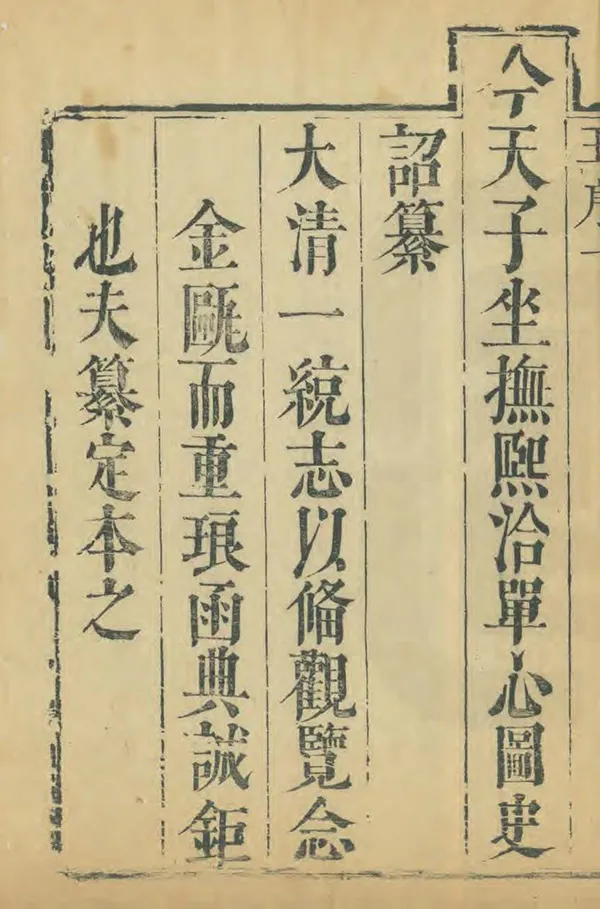 今天子坐撫熙洽單心圖史
詔纂
大清一統志以備觀覽念
金甌而重琅函典誠鉅
也夫纂定本之